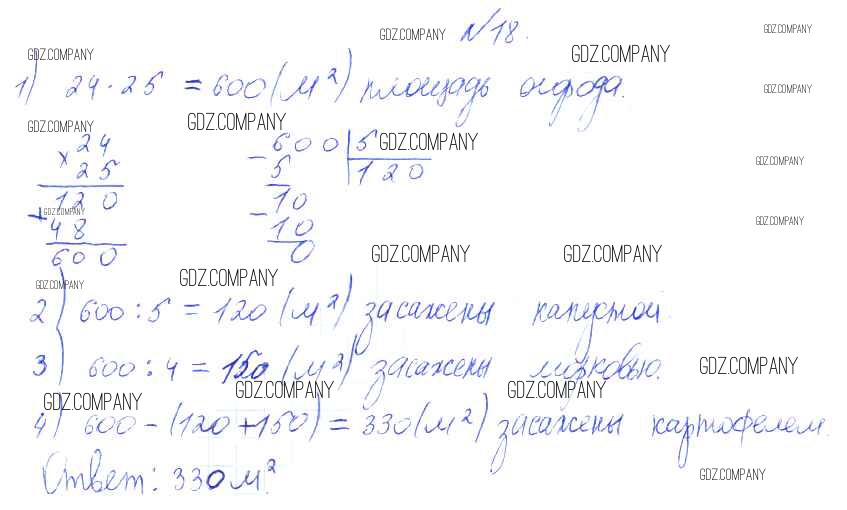 GDZ.COMPANY №18. GDZ.COMPANY
GDZ.COMPANY GDZ.COMPANY
1) 24 · 25 = 600 (м²) площадь огорода.
GDZ.COMPANY
GDZ.COMPANY GDZ.COMPANY
× 24 - 600 | 5 GDZ.COMPANY
25 5 120 GDZ.COMPANY
120 10
+ GDZ.COMPANY - GDZ.COMPANY
48 10
600 0
GDZ.COMPANY GDZ.COMPANY
GDZ.COMPANY GDZ.COMPANY
2) 600 : 5 = 120 (м²) засажены капустой.
3) 600 : 4 = 150 (м²) засажены морковью. GDZ.COMPANY
GDZ.COMPANY GDZ.COMPANY GDZ.COMPANY
4) 600 - (120 + 150) = 330 (м²) засажены картофелем.
Ответ: 330 м². GDZ.COMPANY